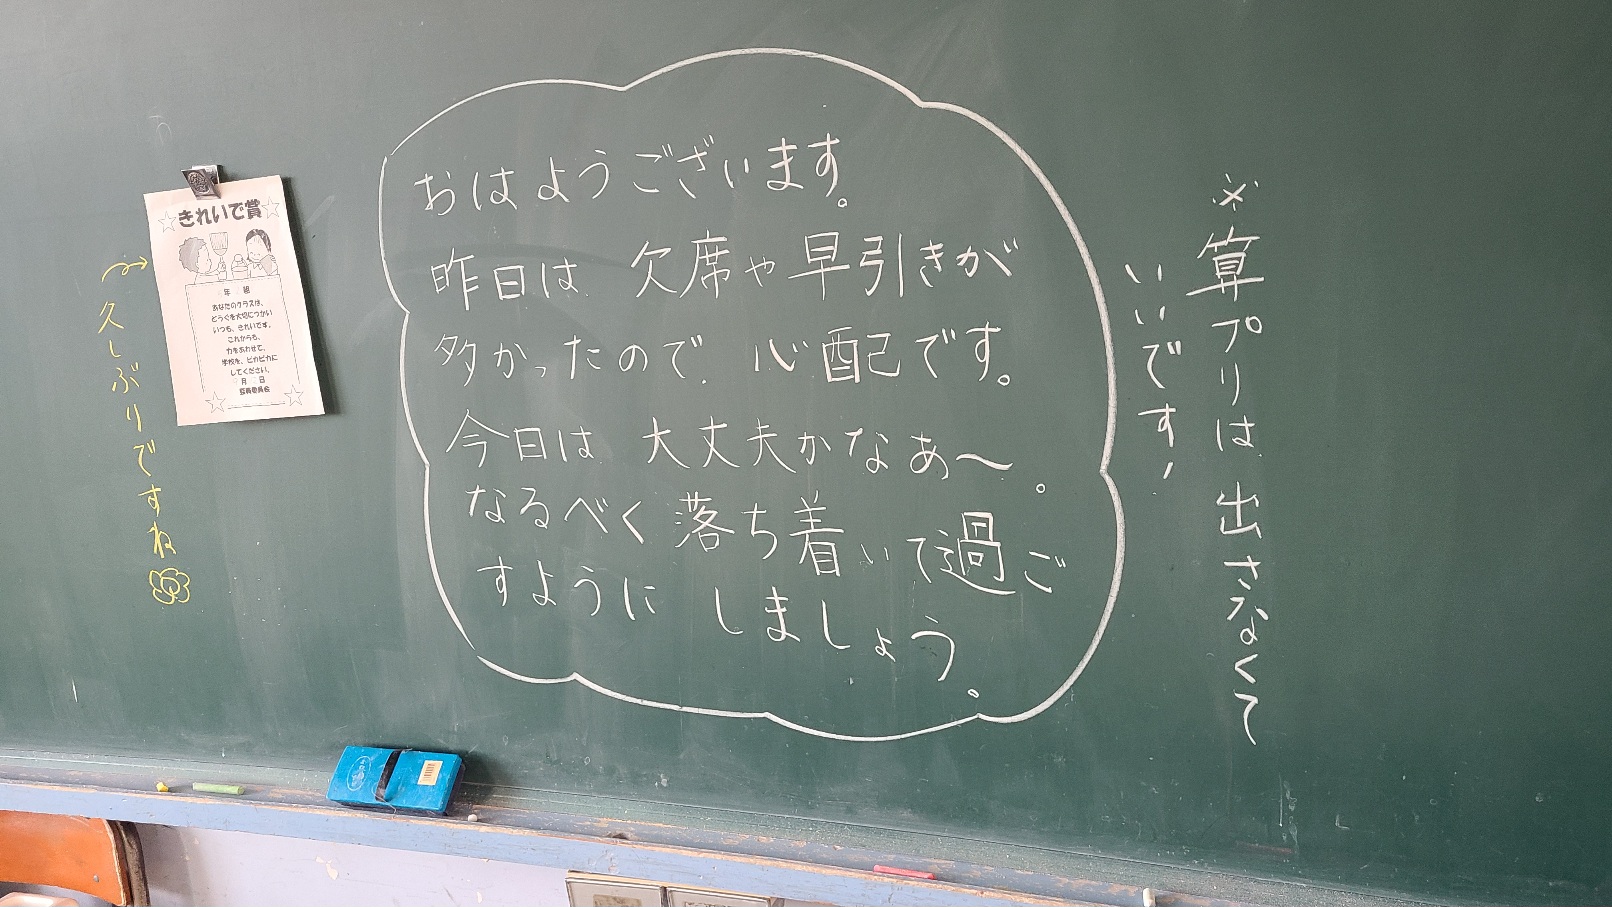 おはようございます。
昨日は、欠席や早引きが
多かったので、心配です。
今日は、大丈夫かなあ〜。
なるべく落ち着いて過ご
すようにしましょう。
※算プリは、出さなくて
いいです!
久しぶりですね
☆きれいで賞☆
年 組
あなたのクラスは、
どうぐを大切につかい
いつも、きれいです。
これからも、
力をあわせて、
学校を、ピカピカに
してください。
月 日